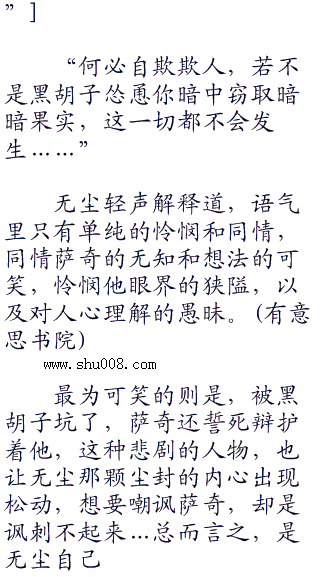 ”]
“何必自欺欺人，若不
是黑胡子怂恿你暗中窃取暗
暗果实，这一切都不会发
生……”
无尘轻声解释道，语气
里只有单纯的怜悯和同情，
同情萨奇的无知和想法的可
笑，怜悯他眼界的狭隘，以
及对人心理解的愚昧。(有意
思书院)
www.shu008.com
最为可笑的则是，被黑
胡子坑了，萨奇还誓死辩护
着他，这种悲剧的人物，也
让无尘那颗尘封的内心出现
松动，想要嘲讽萨奇，却是
讽刺不起来…总而言之，是
无尘自己